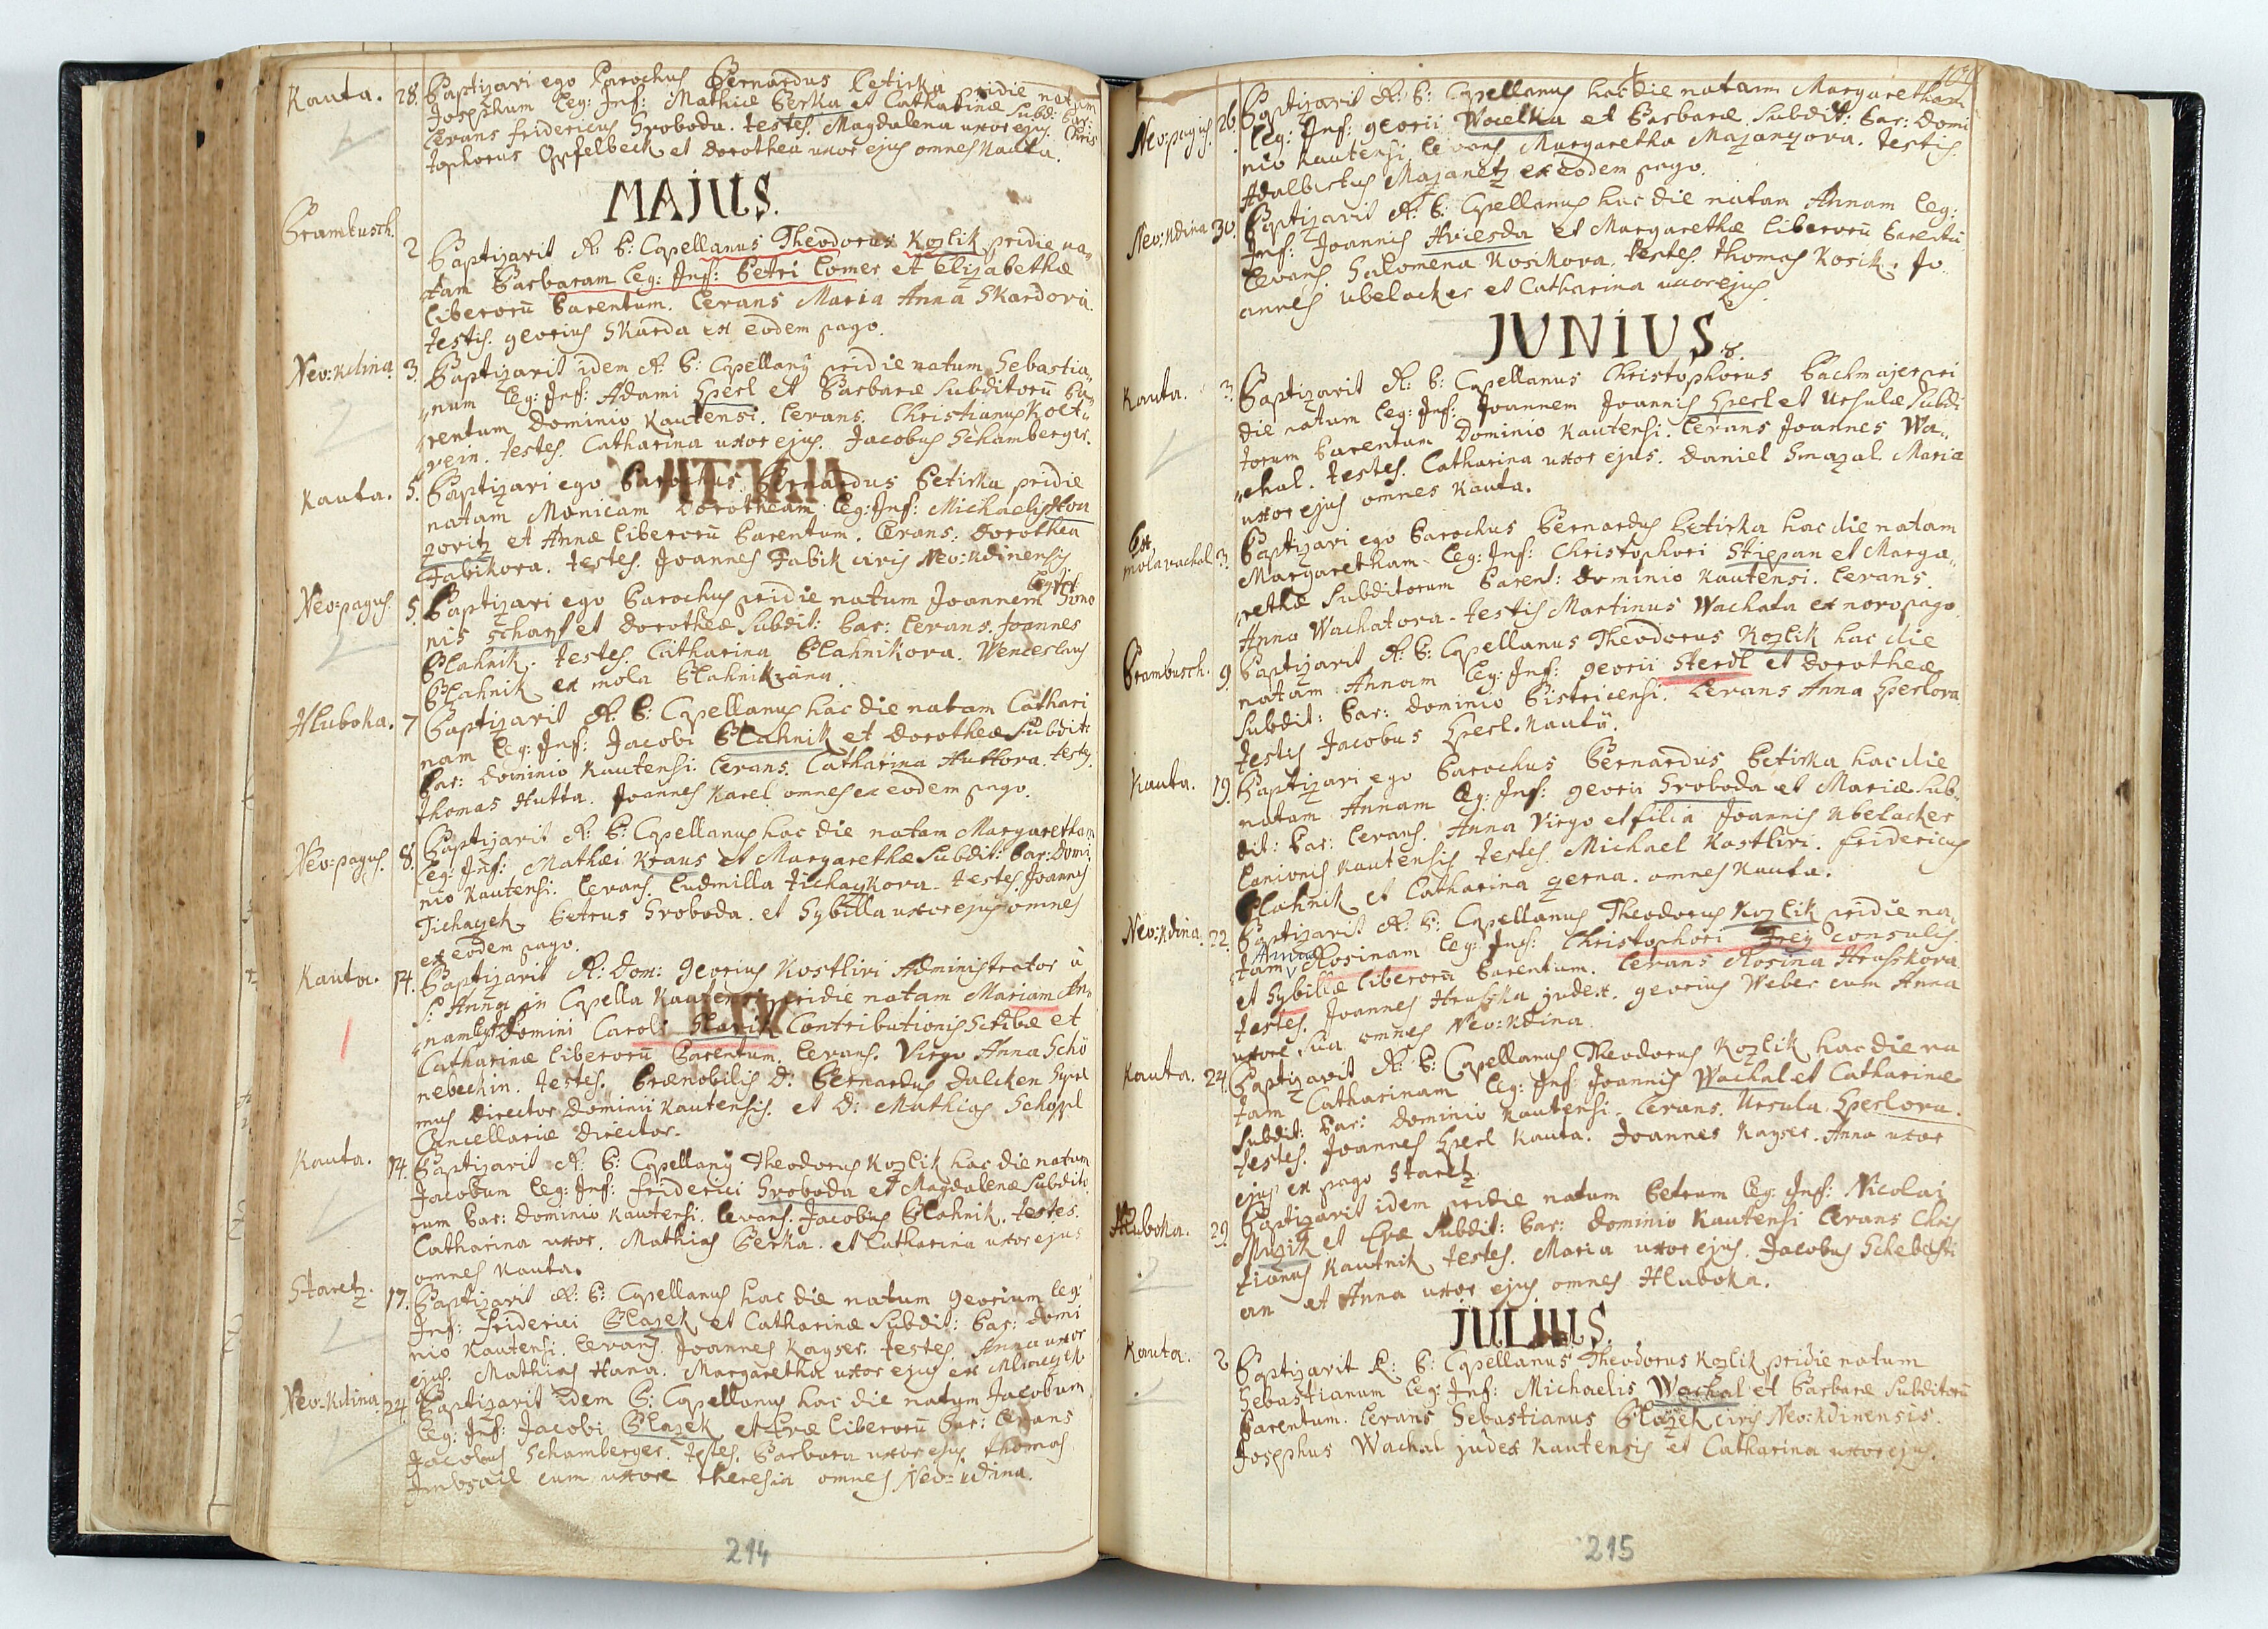 Kauta. 28. Baptizavi ego Parochus Bernardus Petirka pridie natum
Josephum leg: Inf: Mathiæ Berka et Catharinæ Subd: Par:
Levans Fridericus Svoboda. testes. Magdalena uxor ejus. Chris
tophorus Opfelbeck et Dorothea uxor ejus omnes Kauta.
MAJUS.
Prambusch. 2 Baptizavit A: P: Capellanus Theodorus Kozlik pridie na„
tam Barbaram leg: Inf: Petri Lomer et Elizabethæ
liberorū Parentum. Levans Maria Anna Skardova.
testis. georius Skarda ex eodem pago.
Neo:Kdina 3. Baptizavit idem A: P: Capellanȳ pridie natum Sebastia„
„num leg: Inf: Adami Sperl et Barbaræ Subditorū Pa„
„rentum Dominio Kautensi. Levans. Christianus Kolt„
„vein. testes. Catharina uxor ejus. Jacobus Schamberger.
Kauta. 5. Baptizavi ego Parochus Bernardus Petirka pridie
natam Monicam Dorotheam leg: Inf: Michaelis Hon
zovitz et Annæ liberorū Parentum. Levans. Dorothea
Fabikova. testes. Joannes Fabik civis Neo:Kdinensis
Neo:pagus. 5. Baptizavi ego Parochus pridie natum Joannem leg: Inf: Jono
nis Scharf et Dorotheæ Subdit: Par: Levans. Joannes
Blahnik. testes. Catharina Blahnikova. Wenceslaus
Blahnik ex mola Blahnikiana.
Hluboka. 7 Baptizavit A: P: Capellanus hac die natam Cathari
nam leg: Inf: Jacobi Blahnik et Dorotheæ Subdit:
Par: Dominio Kautensi. Levans. Catharina Huttova. testes.
Thomas Hutta. Joannes Karel omnes ex eodem pago.
Neo:pagus. 8. Baptizavit A: P: Capellanus hac die natam Margaretham
leg: Inf: Mathæi Kraus et Margarethæ Subdit: Par: Domi„
nio Kautensi. Levans. Ludmilla Tichaykova. testes. Joannes
Tichayek Petrus Svoboda. et Sybilla uxor ejus omnes
ex eodem pago.
Kauta. 14. Baptizavit A: Dom: georius Kostlivi Administrator à
S: Anna in Capella Kautensi pridie natam Mariam An„
„nam leg: Inf: Domini Caroli Slavik Contributionis Scribæ et
Catharinæ liberorū Parentum. Levans. Virgo Anna Schö
nebechin. testes. Prænobilis D: Bernardus Dalcken Supre
mus Director Dominii Kautensis. et D: Mathias Schöppl
Cancellariæ Director.
Kauta. 14. Baptizavit A: P: Capellanȳ Theodorus Kozlik hac die natum
Jacobum leg: Inf: Friderici Svoboda et Magdalenæ Subdito
rum Par: Dominio Kautensi. Levans. Jacobus Blahnik. testes.
Catharina uxor. Mathias Berka. et Catharina uxor ejus
omnes Kauta.
Staretz. 17. Baptizavit A: P: Capellanus hac die natum georium leg:
Inf: Friderici Blazek et Catharinæ Subdit: Par: Domi
nio Kautensi. Levans. Joannes Kayser. testes Anna uxor
ejus. Mathias Hana. Margaretha uxor ejus ex
Neo:Kdina. 24. Baptizavit idem P: Capellanus hac die natum Jacobum
leg: Inf: Jacobi Blazek et Evæ liberorū Par: Levans
Jacobus Schamberger. testes. Barbara uxor ejus Thomas
cum uxore Theresia omnes Neo:Kdina.
214
Neo:pagus. 26. Baptizavit A: P: Capellanus hac die natam Margaretham
leg: Inf: georii Wocelka et Barbaræ Subdit: Par: Domi
nio Kautensi Levans Margaretha Mazanzova. testis.
Adalbertus Mazanetz ex eodem pago.
Neo:Kdina 30. Baptizavit A: P: Capellanus hac die natam Annam leg:
Inf: Joannis Hviesda et Margarethæ liberorū Parentū
Levans. Salomena Kosikova. testes. Thomas Kosik. Jo
annes Ubelacker et Catharina uxor ejus.
JUNIUS.
Kauta. 3. Baptizavit A: P: Capellanus Christophorus Bachmajer pri
die natum leg: Inf: Joannem Joannis Sperl et Ursulæ Subdi
torum Parentum Dominio Kautensi. Levans Joannes Wa„
„chal. testes. Catharina uxor ejus. Daniel Smazal Maria
uxor ejus omnes Kauta.
Ex mola vachal 3. Baptizavi ego Parochus Bernardus Petirka hac die natam
Margaretham leg: Inf: Christophori Stiepan et Marga„
rethæ Subditorum Parent: Dominio Kautensi. Levans
Anna Wachatova. testis Martinus Wachata ex novo pago.
Prambusch. 9. Baptizavit A: P: Capellanus Theodorus Kozlik hac die
natam Annam leg: Inf: georii Sterdl et Dorotheæ
Subdit: Par: Dominio Bistricensi. Levans Anna Sperlova
testis Jacobus Sperl Kauta.
Kauta. 19. Baptizavi ego Parochus Bernardus Petirka hac die
natam Annam leg: Inf: georii Svoboda et Mariæ Sub„
dit: Par: Levans. Anna Virgo et filia Joannis Ubelacker
Lanionis Kautensis testes. Michael Kostlivi. Fridericus
Blahnik et Catharina Czerna. omnes Kauta.
Neo:Kdina. 22. Baptizavit A: P: Capellanus Theodorus Kozlik pridie na„
tam Annam Rosinam leg: Inf: Christophori Frey consulis
et Sybillæ liberorū Parentum. Levans Rosina Hrusskova
testes. Joannes Hrusska judex. georius Weber cum Anna
uxore sua omnes Neo:Kdina.
Kauta. 24. Baptizavit A: P: Capellanus Theodorus Kozlik hac die na
tam Catharinam leg: Inf: Joannis Wachal et Catharinæ
Subdit: Par: Dominio Kautensi. Levans. Ursula Sperlova.
testes. Joannes Sperl Kauta. Joannes Kayser. Anna uxor
ejus ex pago Staretz.
Hluboka. 29. Baptizavit idem pridie natum Petrum leg: Inf: Nicolai
Muzik et Evæ Subdit: Par: Dominio Kautensi Levans Chris
tianus Kautnik testes. Maria uxor ejus. Jacobus Schebasti
an et Anna uxor ejus omnes Hluboka.
JULIUS.
Kauta. 2 Baptizavit A: P: Capellanus Theodorus Kozlik pridie natum
Sebastianum leg: Inf: Michaelis Wachal et Barbaræ Subditorū
Parentum. Levans Sebastianus Blazek civis Neo:Kdinensis.
Josephus Wachal judex Kautensis et Catharina uxor ejus.
215